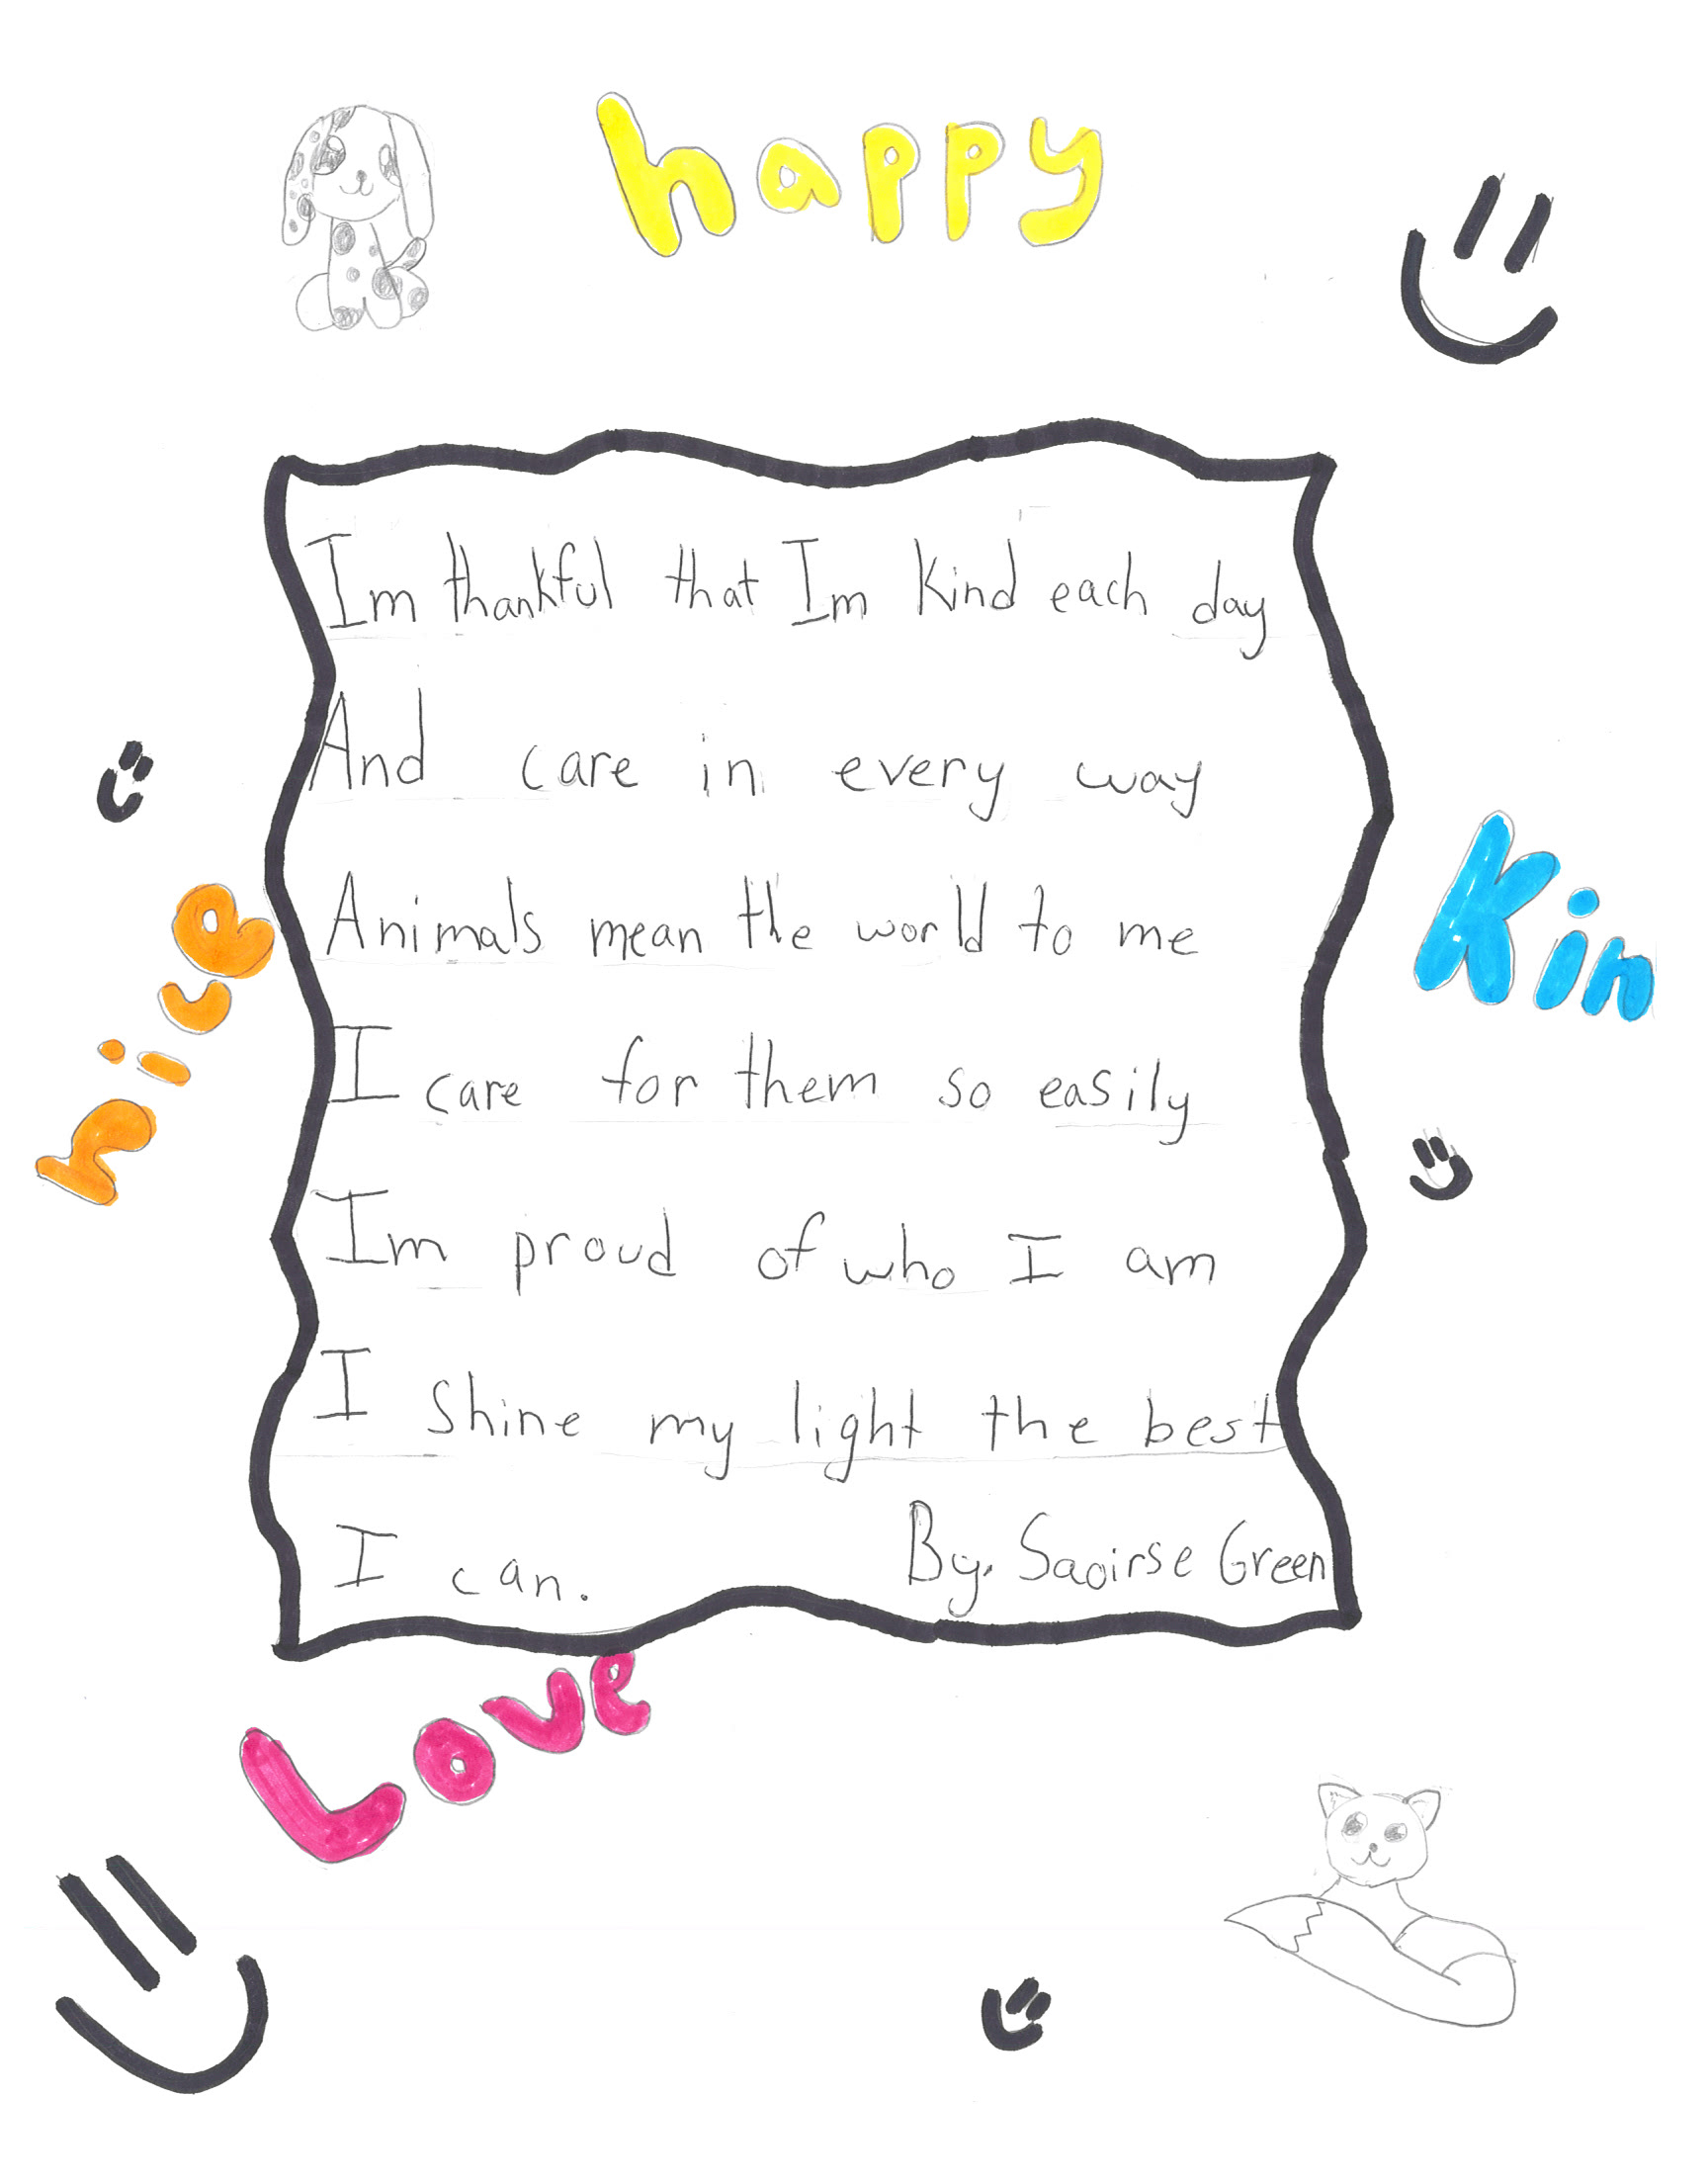 happy
Im thankful that Im Kind each day
And care in every way
Animals mean the world to me
I care for them so easily
Im proud of who I am
I shine my light the best
I can. By, Saoirse Green
nice
Kin
Love